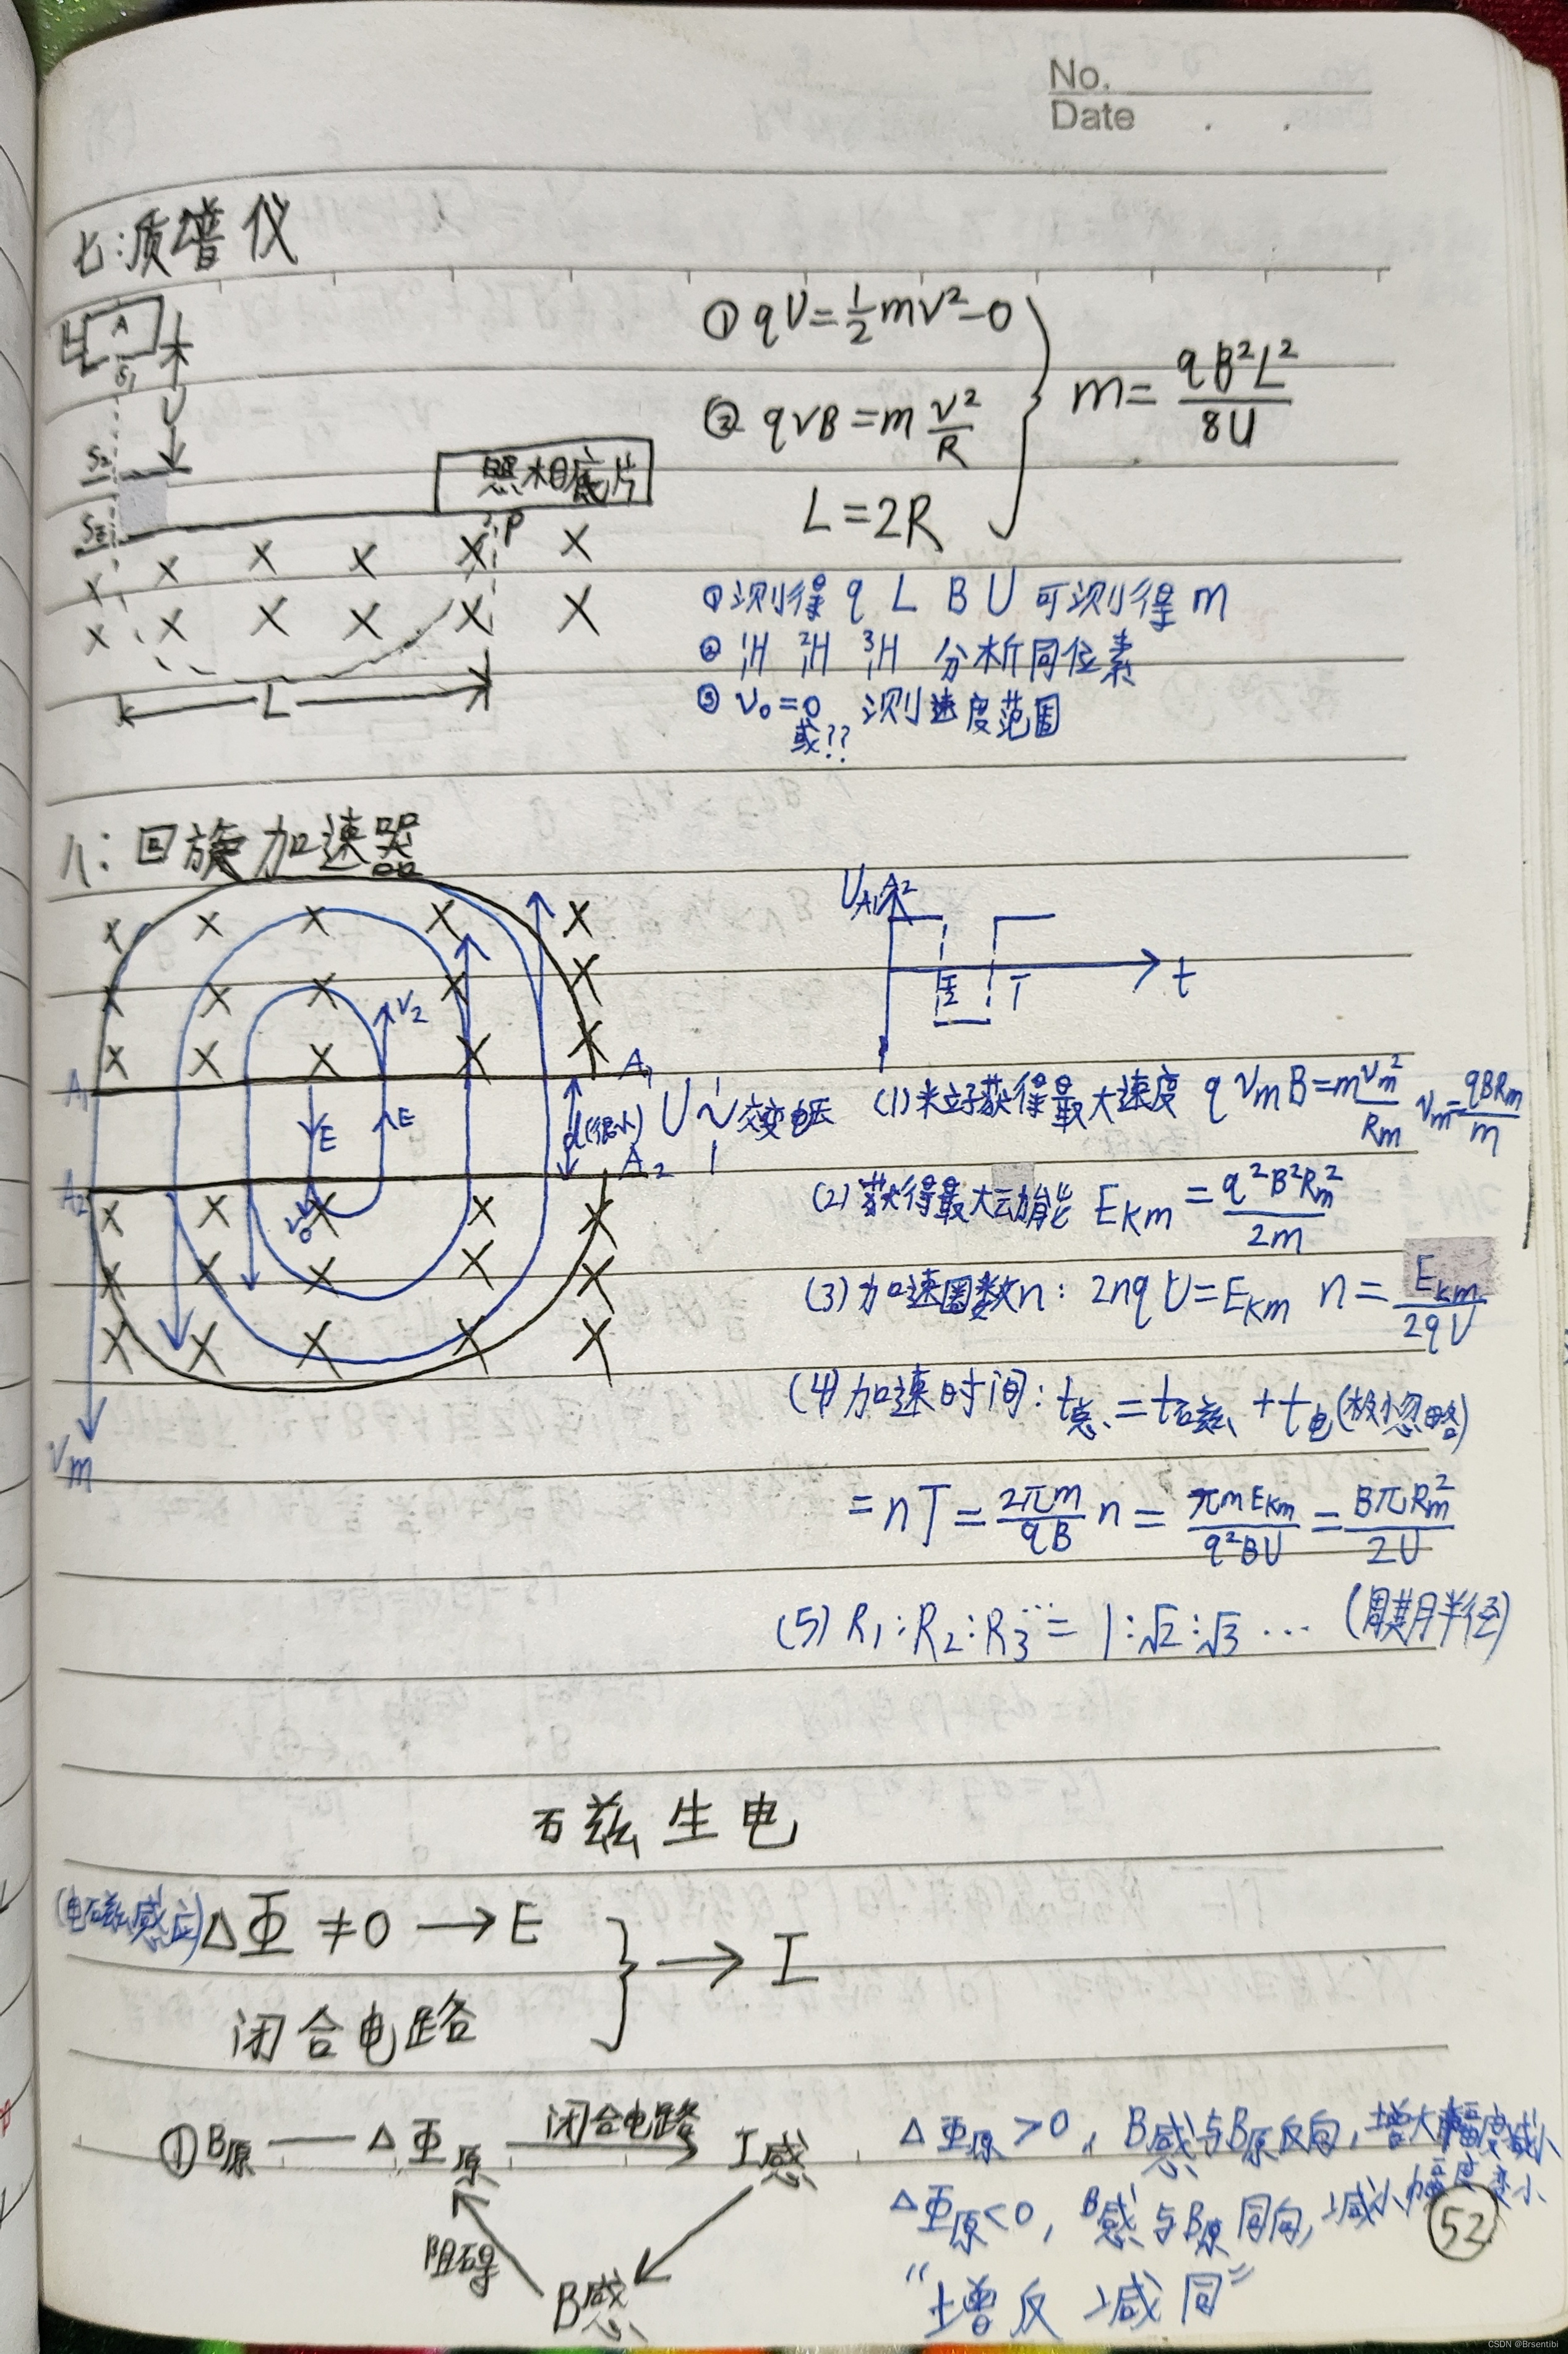 No.
Date . .
七:质谱仪
A
S₁
U
S₂
S₃
照相底片
P
L
① qU=½mv²-0
② qvB=m v²/R
L=2R
m= qB²L²/8U
①测得 q L B U 可测得 m
② ¹₁H ²₁H ³₁H 分析同位素
③ v₀=0 测速度范围
或??
八:回旋加速器
v₂
A₁
A₁
E
E
d(很小)
U~交变电压
A₂
A₂
v₀
Vm
U A₁A₂
T/2
T
t
(1)粒子获得最大速度 qvmB=m vm²/Rm vm= qBRm/m
(2)获得最大动能 EKm = q²B²Rm²/2m
(3)加速圈数n: 2nqU=EKm n= EKm/2qU
(4)加速时间: t总=t磁+t电(极小忽略)
=nT= 2πm/qB n= πmEKm/q²BU = BπRm²/2U
(5) R₁:R₂:R₃…= 1:√2:√3 … (周期半径)
磁生电
(电磁感应) ΔΦ ≠0 → E
闭合电路
} → I
①B原 — ΔΦ原 闭合电路→ I感
阻碍
B感
ΔΦ原>0, B感与B原反向,增大幅度减小
ΔΦ原<0, B感与B原同向,减小幅度变小
“增反减同”
52
CSDN @Brsentibi